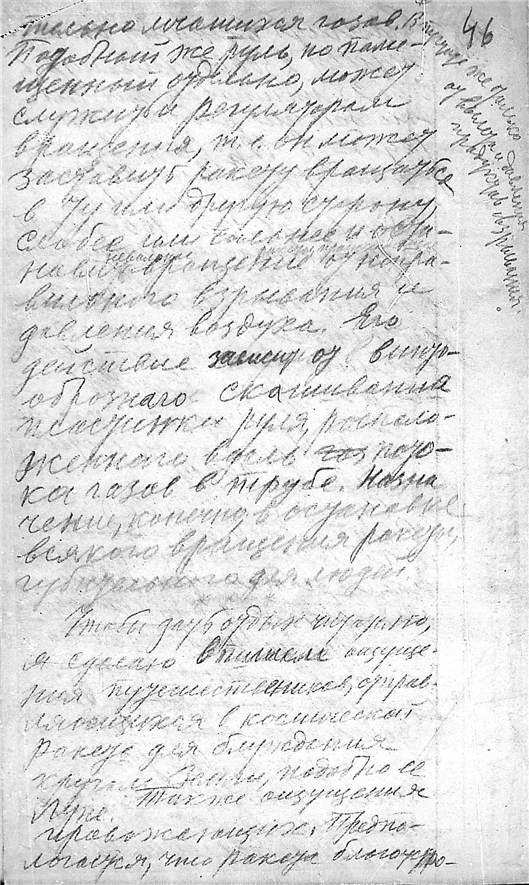 46
мчащихся газов.
Подобный же руль, но поме-
щенный отдельно, может
служить и регулятором
вращения, т. е. он может
заставить ракету вращаться
в ту или другую сторону
слабее или сильнее и оста-
вращение от непра-
вильного взрывания и
давления воздуха. Его
действие зависит от винто-
образнаго скашивания
пластинки руля, располо-
женнаго вдоль пото-
ка газов в трубе. Назна
чение, конечно, в остановке
всякого вращения ракеты,
губительного для людей.
Чтобы дать отдых читателю,
я сделаю описание ощуще-
ния путешественников, отправ-
ляющихся в космической
ракете для блуждания
кругом Земли, подобно ее
Луне. Также ощущения
провожающих. Предпо-
лагается, что ракета благоустро-